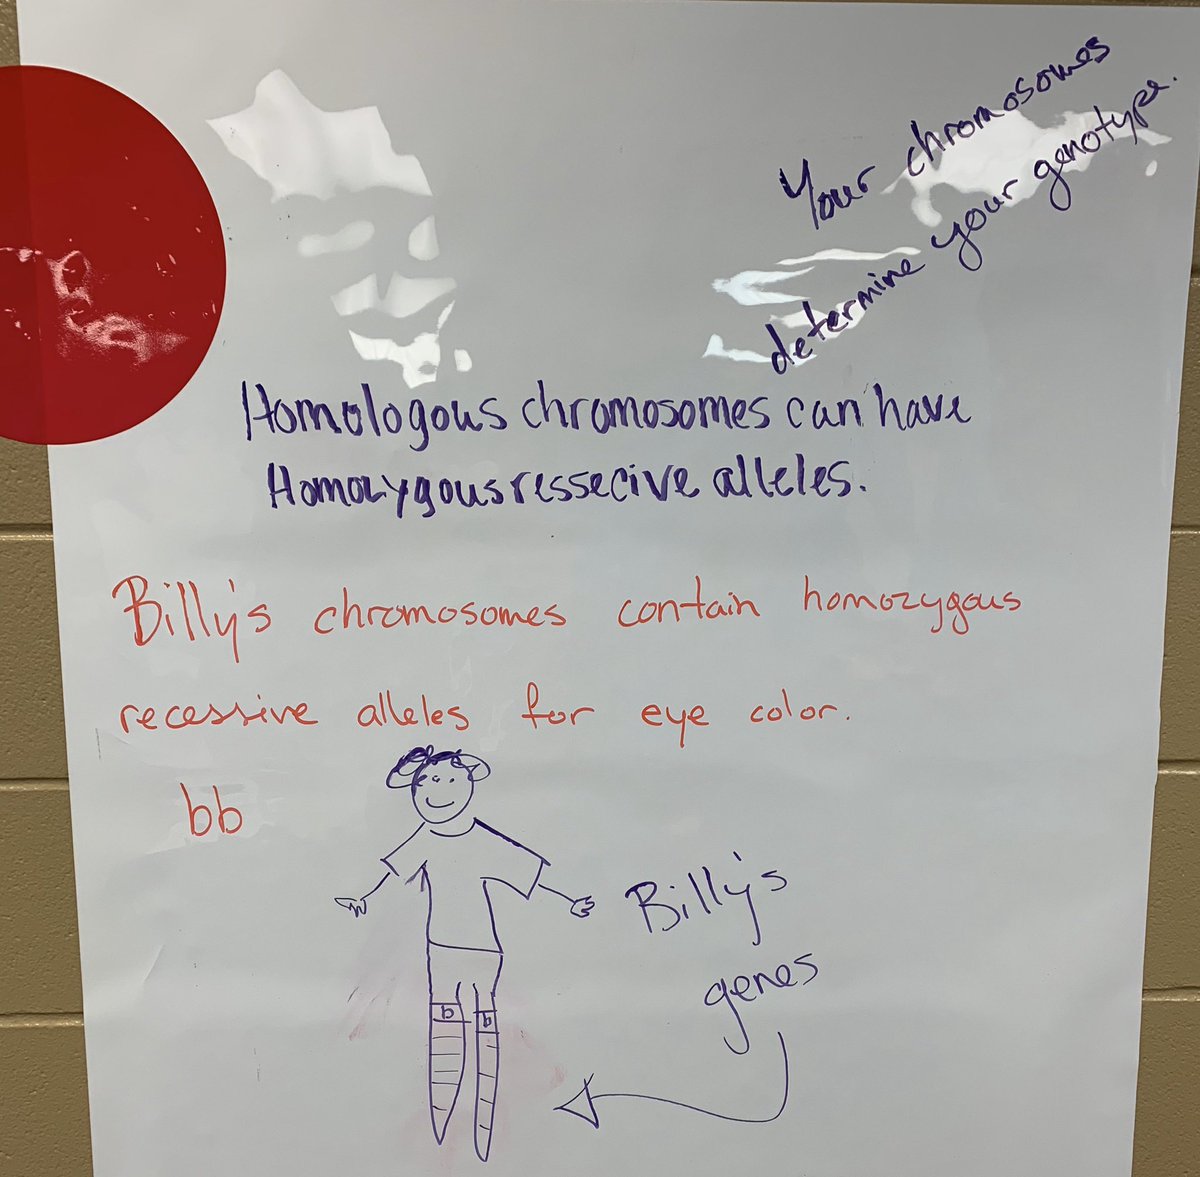 Your chromosomes
determine your genotype.
Homologous chromosomes can have
Homozygous ressecive alleles.
Billy's chromosomes contain homozygous
recessive alleles for eye color.
bb
Billy's
genes
b b